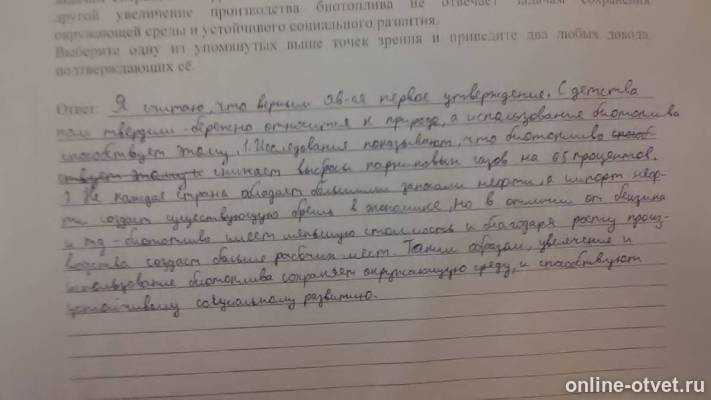 другой увеличение производства биотоплива не отвечает задачам сохранения
окружающей среды и устойчивого социального развития.
Выберите одну из упомянутых выше точек зрения и приведите два любых довода,
подтверждающих её.
Ответ: Я считаю, что верным яв-ся первое утверждение. С детства
нам твердили - бережно относится к природе, а использование биотоплива
способствует этому. 1. Исследования показывают, что биотопливо способ-
ствует этому снижает выбросы парниковых газов на 65 процентов.
2. Не каждая страна обладает большими запасами нефти, а импорт неф-
ти создаёт существующую брешь в экономике, но в отличии от бензина
и тд - биотопливо имеет меньшую стоимость и благодаря росту произ-
водства создаст больше рабочих мест. Таким образом, увелечение и
использование биотоплива сохраняет окружающую среду, и способствуют
устойчивому социальному развитию.
online-otvet.ru